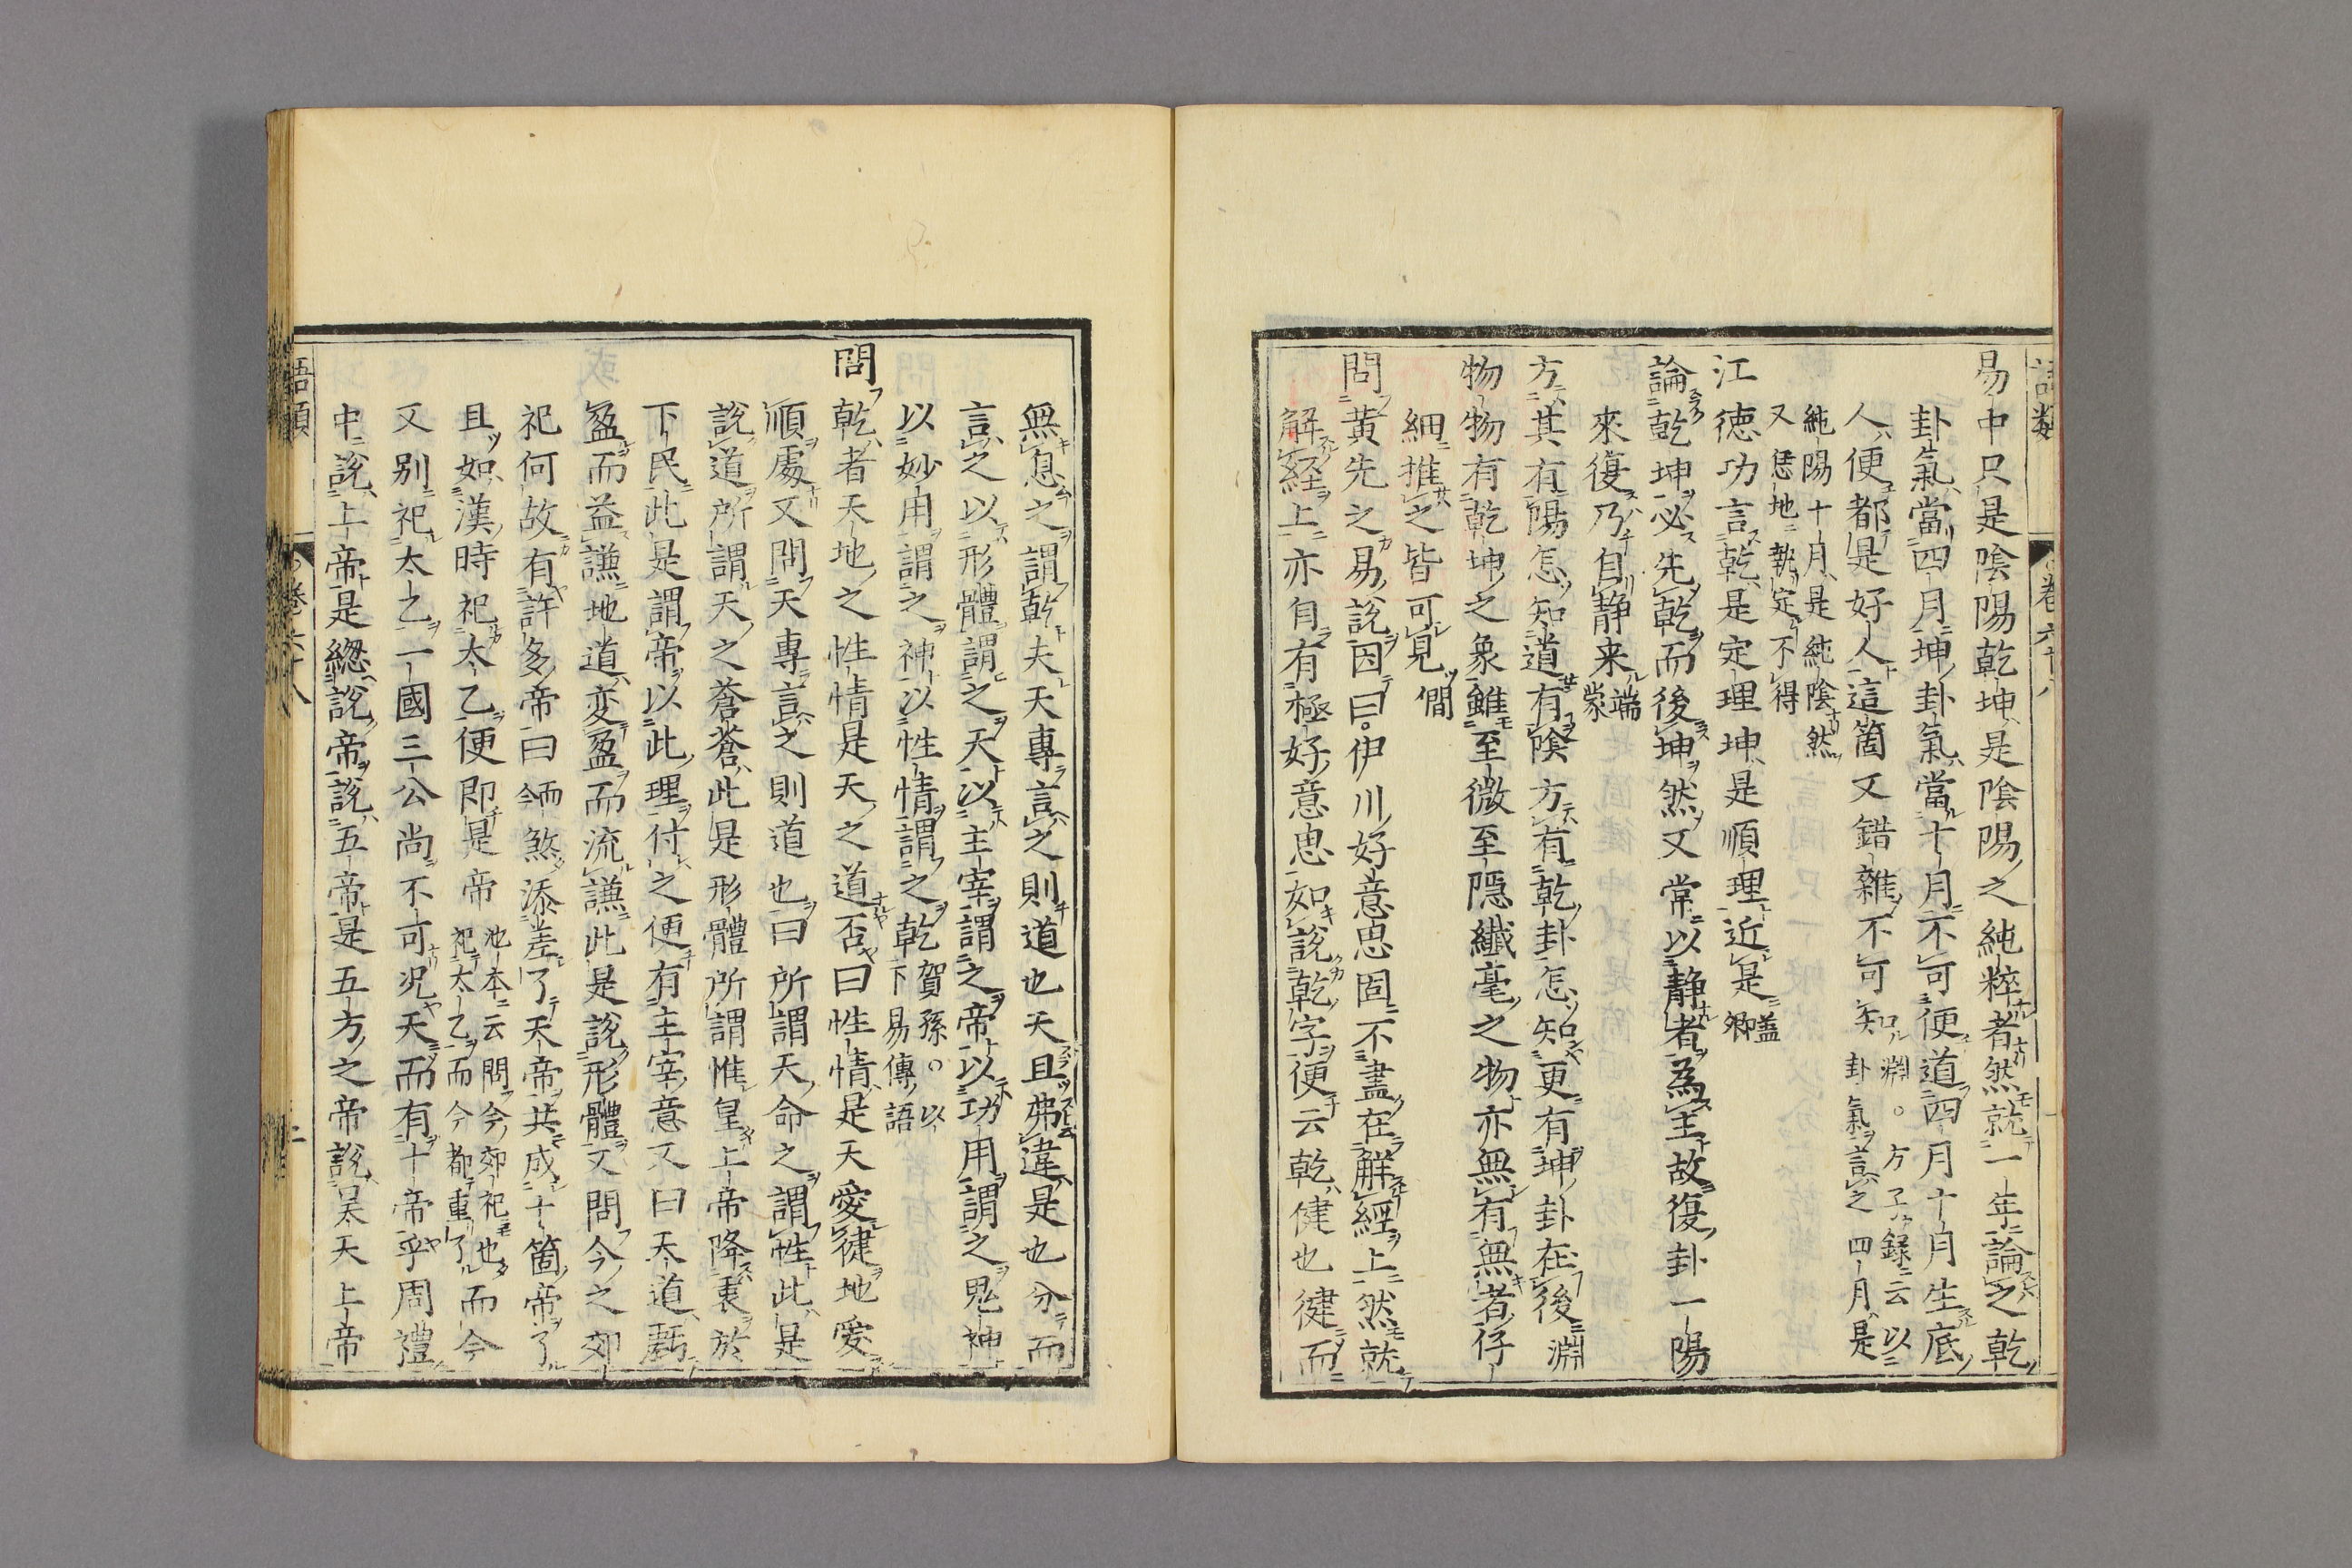 易中只是陰陽乾坤是陰陽之純粹者然就一年論之乾
卦氣當四月坤卦氣當十月不可便道四月十月生底
人便都是好人這箇又錯雜不可知淵。方子錄云以
卦氣言之四月是
純陽十月是純陰然
又恁地執定不得
江德功言乾是定理坤是順理近是蓋
卿
論乾坤必先乾而後坤然又常以静者為主故復卦一陽
來復乃自静来端
蒙
方其有陽怎知道有陰方有乾卦怎知更有坤卦在後淵
物物有乾坤之象雖至微至隠纖毫之物亦無有無者仔
細推之皆可見僩
問黃先之易說因曰。伊川好意思固不盡在解經上然就
解経上亦自有極好意思如說乾字便云乾健也健而
無息之謂乾夫天專言之則道也天且弗違是也分而
言之以形體謂之天以主宰謂之帝以功用謂之鬼神
以妙用謂之神以性情謂之乾賀孫。以
下易傳語
問乾者天地之性情是天之道否曰性情是天愛健地愛
順處又問天專言之則道也曰所謂天命之謂性此是
說道所謂天之蒼蒼此是形體所謂惟皇上帝降衷於
下民此是謂帝以此理付之便有主宰意又曰天道虧
盈而益謙地道変盈而流謙此是說形體又問今之郊
祀何故有許多帝曰而
今煞添差了天帝共成十箇帝了
且如漢時祀太乙便即是帝池本云問今郊祀也
祀太乙而今都重了而今
又别祀太乙一國三公尚不可况天而有十帝乎周禮
中說上帝是緫說帝說五帝是五方之帝說昊天上帝
語類
卷六十八